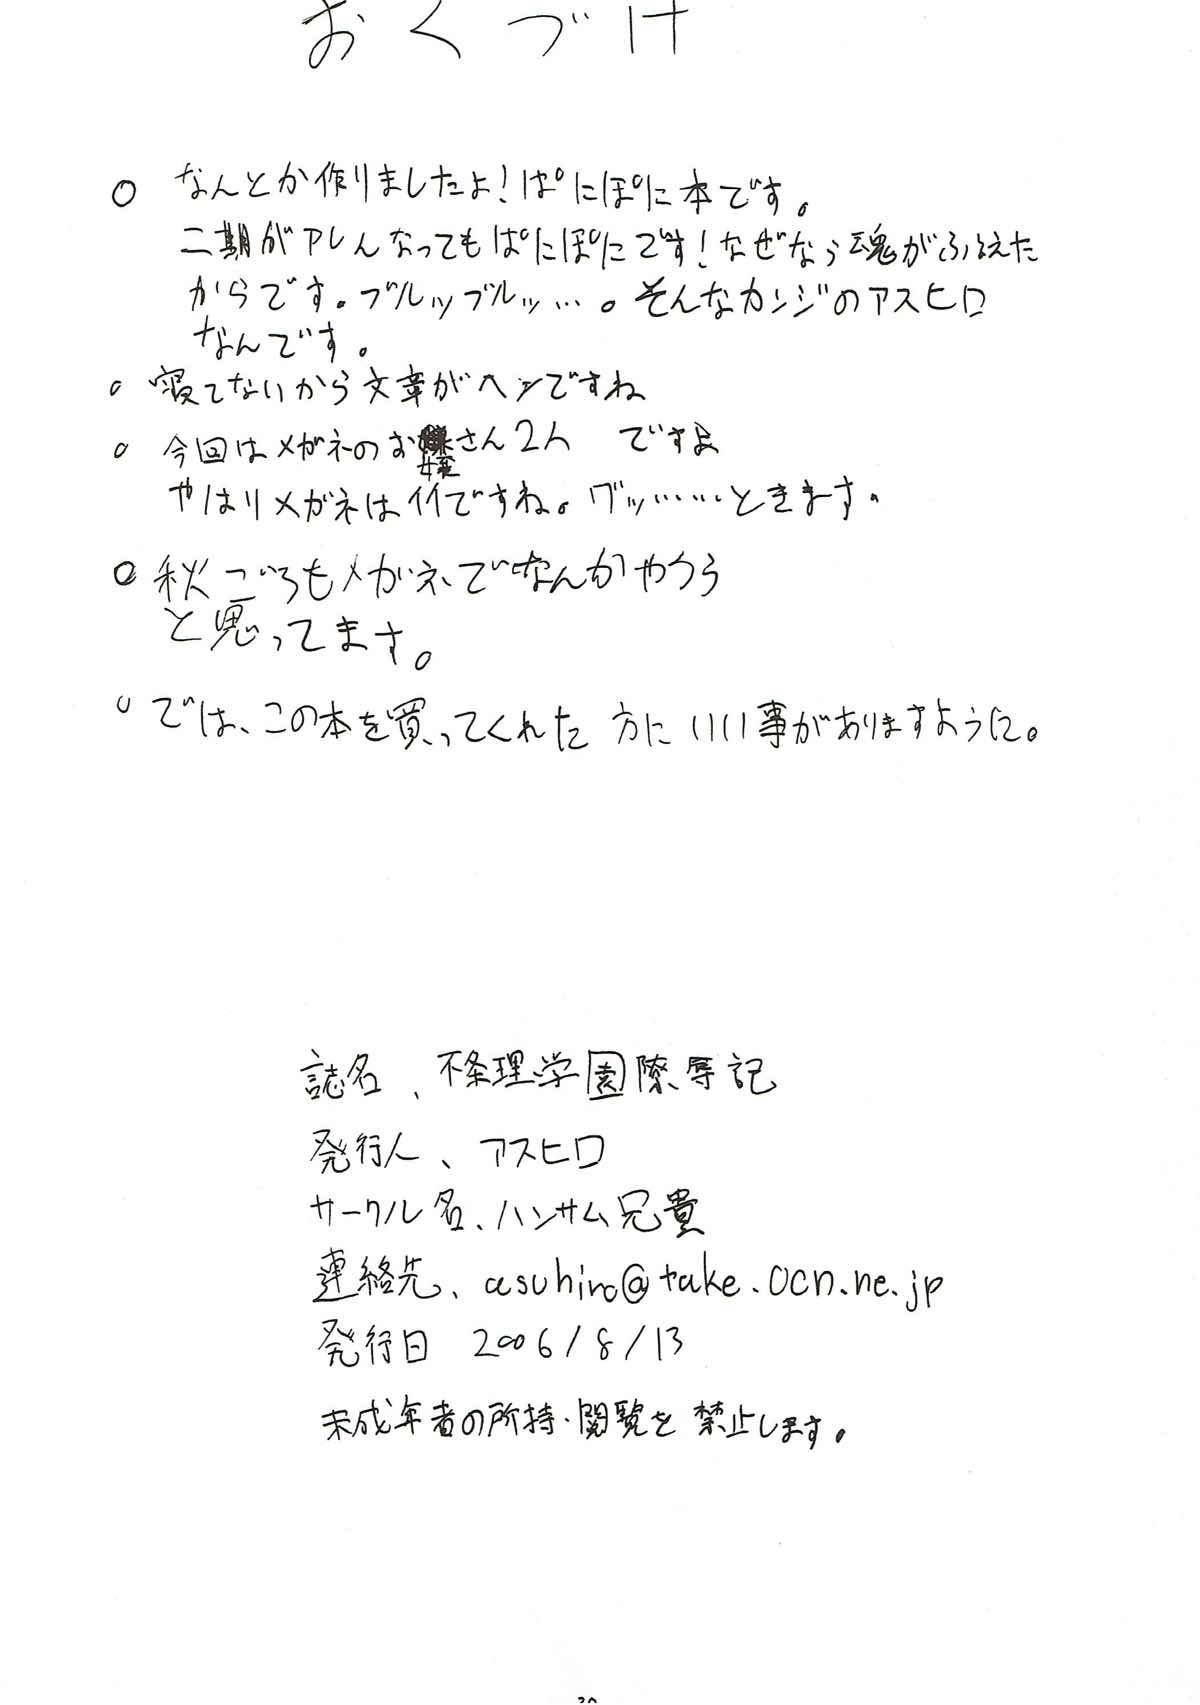 おくづけ
○ なんとか作りましたよ!ぱにぽに本です。
二期がアレんなってもぱにぽにです!なぜなら魂がふるえた
からです。ブルッブルッ…。そんなカンジのアスヒロ
なんです。
○ 寝てないから文章がヘンですね
○ 今回はメガネのお嬢さん2人 ですよ
やはりメガネはイイですね。グッ……ときます。
○ 秋ごろもメガネでなんかやろう
と思ってます。
○ では、この本を買ってくれた方にいい事がありますように。
誌名、不条理学園陵辱記
発行人、アスヒロ
サークル名、ハンサム兄貴
連絡先、asuhiro@take.ocn.ne.jp
発行日 2006/8/13
未成年者の所持・閲覧を禁止します。